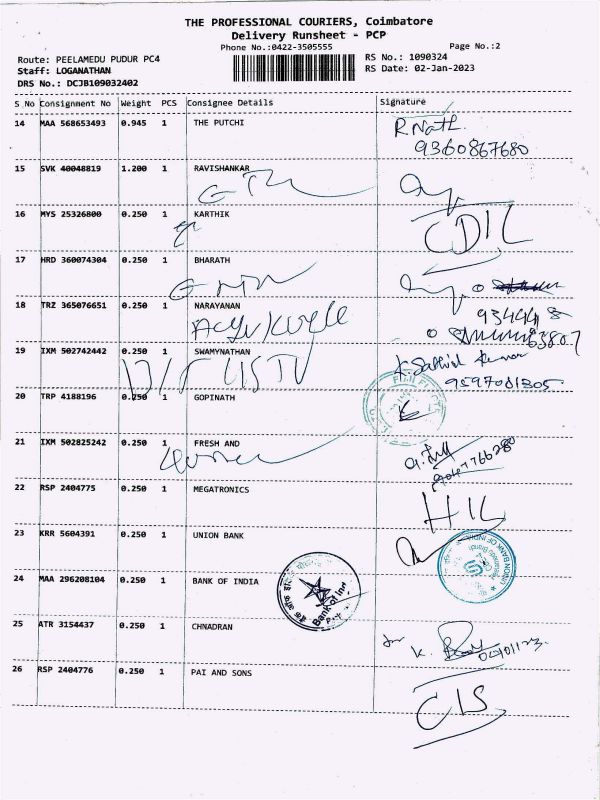 THE PROFESSIONAL COURIERS, Coimbatore
Delivery Runsheet - PCP
Phone No.:0422-3505555
Page No.:2
Route: PEELAMEDU PUDUR PC4
RS No.: 1090324
Staff: LOGANATHAN
RS Date: 02-Jan-2023
DRS No.: DCJB109032402
S No Consignment No Weight PCS Consignee Details Signature
14 MAA 568653493 0.945 1 THE PUTCHI
R.Nath
9360867680
15 SVK 40048819 1.200 1 RAVISHANKAR
16 MYS 25326800 0.250 1 KARTHIK
CDIL
17 HRD 360074304 0.250 1 BHARATH
18 TRZ 365076651 0.250 1 NARAYANAN
19 IXM 502742442 0.250 1 SWAMYNATHAN
9597081305
20 TRP 4188196 0.250 1 GOPINATH
21 IXM 502825242 0.250 1 FRESH AND
22 RSP 2404775 0.250 1 MEGATRONICS
23 KRR 5604391 0.250 1 UNION BANK
UNION BANK OF INDIA
24 MAA 296208104 0.250 1 BANK OF INDIA
Bank of Ind
25 ATR 3154437 0.250 1 CHNADRAN
26 RSP 2404776 0.250 1 PAI AND SONS
CIS